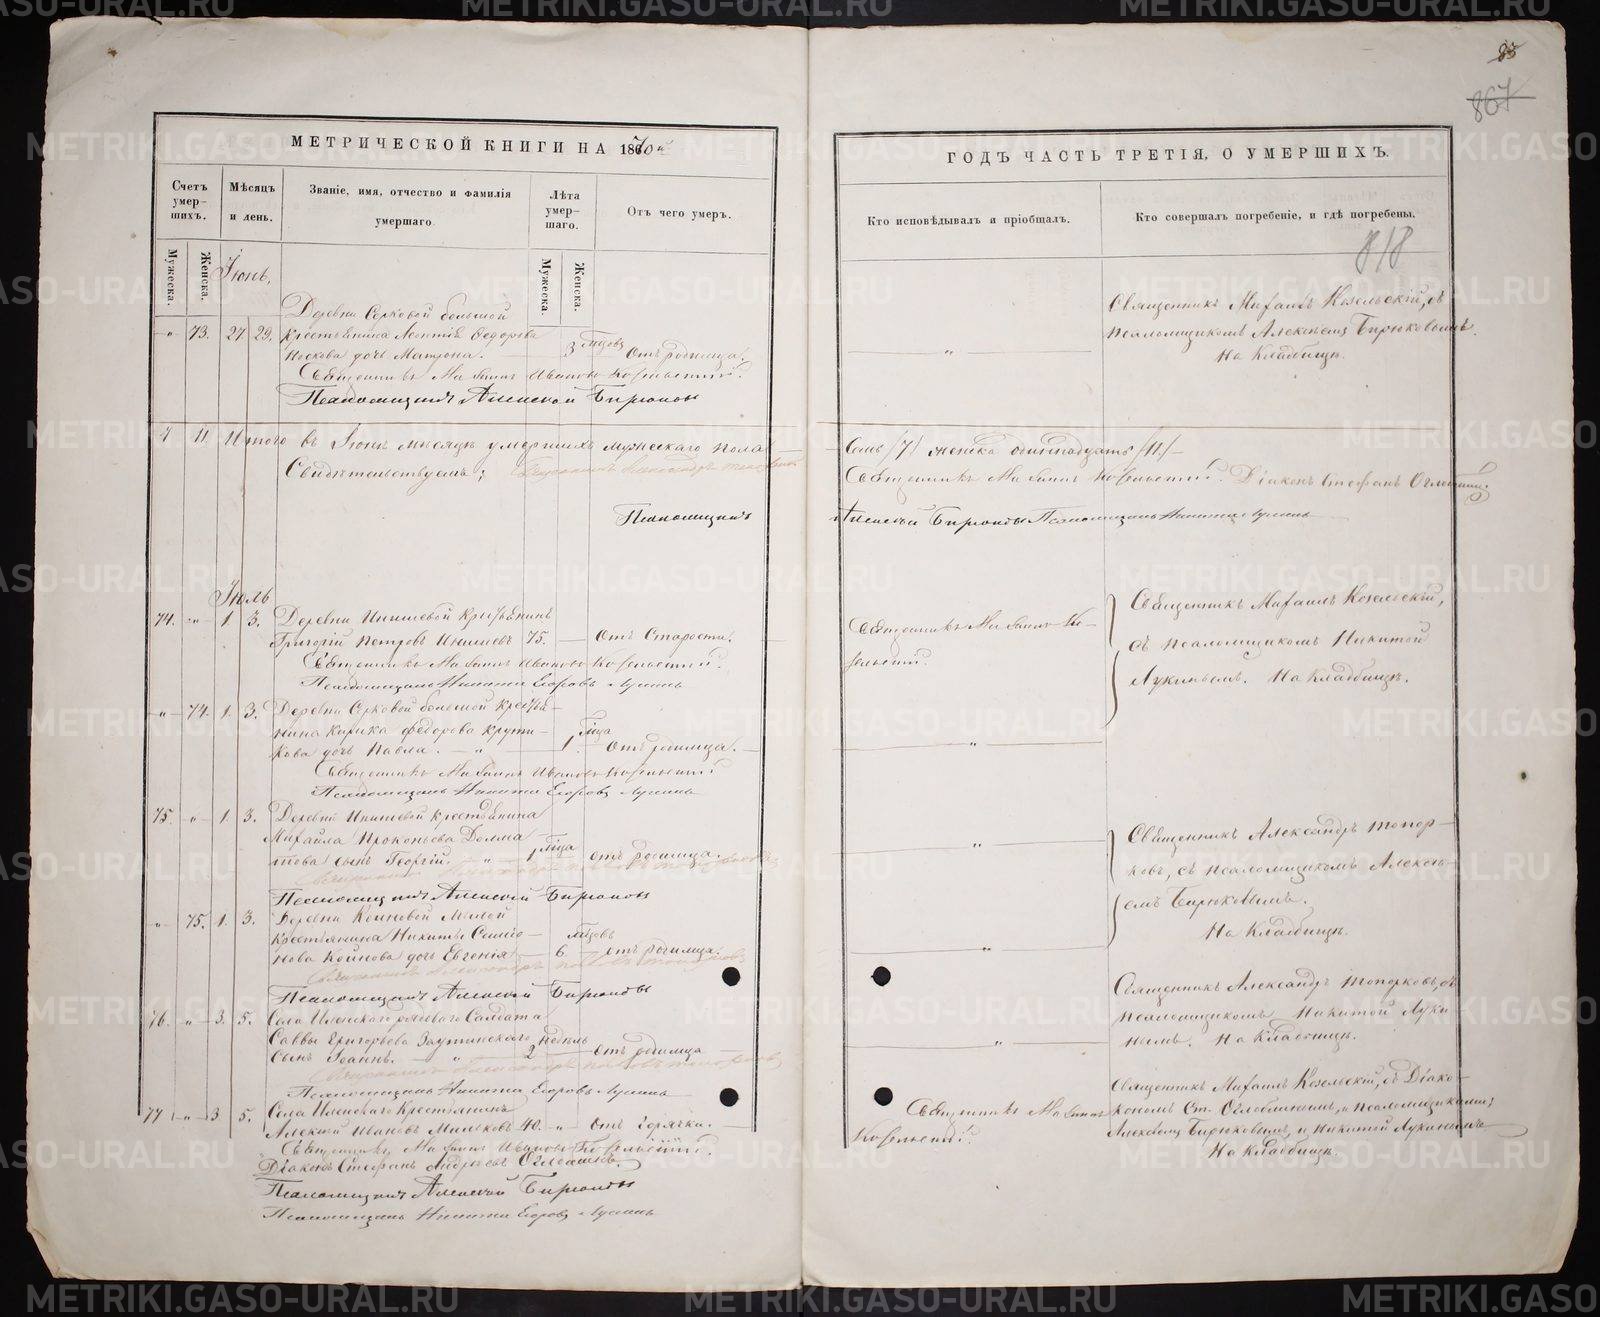 85
867
МЕТРИЧЕСКОЙ КНИГИ НА 1870й
ГОДЪ ЧАСТЬ ТРЕТІЯ, О УМЕРШИХЪ.
Счетъ умер-шихъ.
Мѣсяцъ и день.
Званіе, имя, отчество и фамилія умершаго.
Лѣта умер-шаго.
Отъ чего умеръ.
Кто исповѣдывалъ и пріобщалъ.
Кто совершалъ погребеніе, и гдѣ погребены.
Мужеска.
Женска.
Мужеска.
Женска.
818
Іюнь,
Деревни Серковой большой
73. 27 29. крестьянина Леонтія Ѳедорова
доч Матрона. 3 мѣсяцовъ Отъ родимца.
Священникъ Михаилъ Ивановъ Козельскій.
Псаломщикъ Алексѣй Бирюковъ
Священникъ Михаилъ Козельскій, съ
псаломщикомъ Алексѣемъ Бирюковымъ.
На Кладбищѣ.
7 11 Итого въ Іюнѣ мѣсяцѣ умершихъ мужескаго пола
Семь /7/ женска одиннадцать /11/
Свидѣтельствуемъ; Священникъ Александръ Топорковъ
Священникъ Михаилъ Козельскій. Діаконъ Стефанъ Оглоблинъ.
Псаломщикъ
Алексѣй Бирюковъ Псаломщикъ Никита Лукинъ
Іюль
74. 1 3. Деревни крестьянинъ
Григорій Петровъ 75. Отъ Старости.
Священникъ Михаилъ Ивановъ Козельскій.
Псаломщикъ Никита Егоровъ Лукинъ
Священникъ Михаилъ Ко-
зельскій.
Священникъ Михаилъ Козельскій,
съ псаломщикомъ Никитой
Лукинымъ. На кладбищѣ.
74. 1. 3. Деревни Серковой большой крестья-
нина Кирика Федорова Крути-
кова дочь Павла. 1. мѣсяца Отъ родимца.
Священникъ Михаилъ Ивановъ Козельскій
Псаломщикъ Никита Егоровъ Лукинъ
75. 1 3. Деревни крестьянина
Михаила Прокопьева Долма-
това сынъ Георгій. 1 мѣсяца отъ родимца.
Псаломщикъ Алексѣй Бирюковъ
Священникъ Александръ Топор-
ковъ, съ псаломщикомъ Алексѣ-
емъ Бирюковымъ.
На Кладбищѣ.
75. 1. 3. Деревни Коиновой Малой
крестьянина Никиты Симео-
нова Коинова дочь Евгенія 6 мѣсяцовъ отъ родимца.
Псаломщикъ Алексѣй Бирюковъ
76. 3. 5. Села Иленскаго рядоваго Солдата
Саввы Григорьева недѣль
сынъ Іоаннъ. 2 Отъ родимца
Псаломщикъ Никита Егоровъ Лукинъ
Священникъ Александръ Топорковъ, съ
псаломщикомъ Никитой Луки
нымъ. На Кладбищѣ.
77 3 5. Села Иленскаго Крестьянинъ
Алексѣй Ивановъ Мильковъ 40. отъ Горячки.
Священникъ Михаилъ Ивановъ Козельскій.
Діаконъ Стефанъ Андреевъ Оглоблинъ.
Псаломщикъ Алексѣй Бирюковъ
Псаломщикъ Никита Егоровъ Лукинъ
Священникъ Михаилъ
Козельскій.
Священникъ Михаилъ Козельскій, съ Діако-
кономъ Ст. Оглоблинымъ, и псаломщиками;
Алексѣемъ Бирюковымъ, и Никитой Лукинымъ
На Кладбищѣ.
METRIKI.GASO-URAL.RU